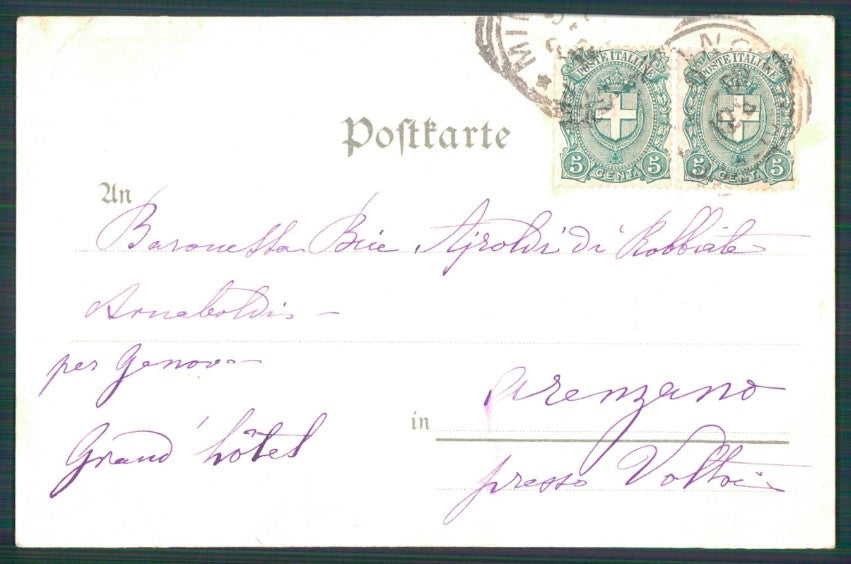 POSTE ITALIANE POSTE ITALIANE
5 CENT. 5 5 CENT. 5
Postkarte
An
Baronessa Bice Ajroldi di Robbiate
Arnaboldi -
per Genova
in Arenzano
Grand hôtel
presso Voltri